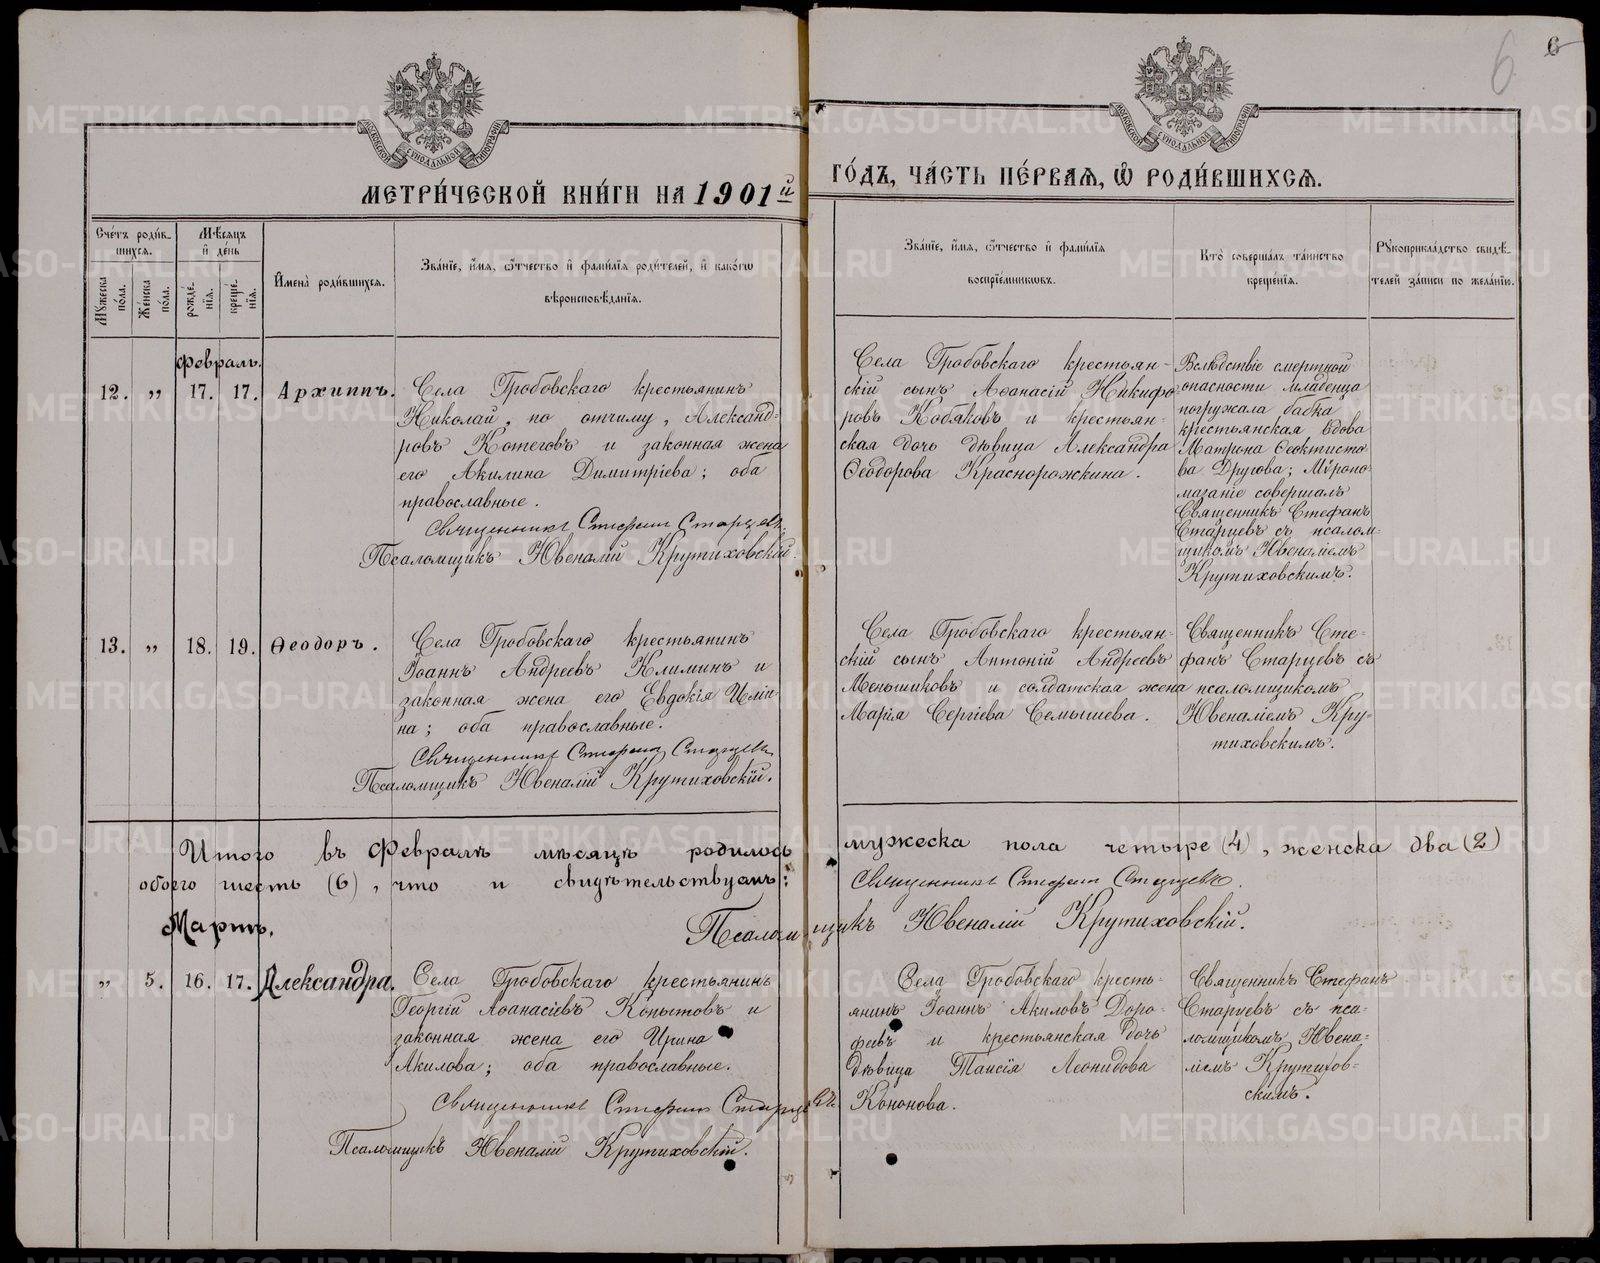 6
6
МОСКОВСКОЙ СУНОДАЛЬНОЙ ТИПОГРАФІИ
МОСКОВСКОЙ СУНОДАЛЬНОЙ ТИПОГРАФІИ
МЕТРИ́ЧЕСКОЙ КНИ́ГИ НА 1901й
ГО́ДЪ, ЧА́СТЬ ПЕ́РВАЯ, Ѽ РОДИ́ВШИХСЯ.
Сче́тъ роди́в-
шихся.
Му́жеска по́ла.
Же́нска по́ла.
Мѣ́сяцъ
и де́нь
рожде́-
нїя.
креще́-
нїя.
Имена̀ роди́вшихся.
Зва́нїе, и́мя, ѻ҆́тчество и фами́лїя роди́телей, и како́гѡ
вѣроисповѣ́данїя.
Зва́нїе, и́мя, ѻ҆́тчество и фами́лїя
воспрїе́мниковъ.
Кто̀ соверша́лъ та́инство
креще́нїя.
Рукоприкла́дство свидѣ́-
телей за́писи по жела́нїю.
Февраль.
12. „ 17. 17. Архиппъ.
Села Гробовскаго крестьянинъ
Николай, по отчиму, Александ-
ровъ Котеговъ и законная жена
его Акилина Димитріева; оба
православные.
Священникъ Стефанъ Старцевъ.
Псаломщикъ Ювеналій Крутиховскій.
Села Гробовскаго крестьян-
скій сынъ Аѳанасій Никифо-
ровъ Кобяковъ и крестьян-
ская дочь дѣвица Александра
Ѳеодорова Краснорожкина.
Вслѣдствіе смертной
опасности младенца
погружала бабка
крестьянская вдова
Матрона Ѳеоктисто-
ва Другова; Мѵропо-
мазаніе совершалъ
Священникъ Стефанъ
Старцевъ съ псалом-
щикомъ Ювеналіемъ
Крутиховскимъ.
13. „ 18. 19. Ѳеодоръ.
Села Гробовскаго крестьянинъ
Іоаннъ Андреевъ Климинъ и
законная жена его Евдокія Иліи-
на; оба православные.
Священникъ Стефанъ Старцевъ
Псаломщикъ Ювеналій Крутиховскій.
Села Гробовскаго крестьян-
скій сынъ Антоній Андреевъ
Меньшиковъ и солдатская жена
Марія Сергіева Семышева.
Священникъ Сте-
фанъ Старцевъ съ
псаломщикомъ
Ювеналіемъ Кру-
тиховскимъ.
Итого въ Февралѣ мѣсяцѣ родилось мужеска пола четыре (4), женска два (2)
обоего шесть (6), что и свидѣтельствуемъ:
Священникъ Стефанъ Старцевъ.
Псаломщикъ Ювеналій Крутиховскій.
Мартъ.
„ 5. 16. 17. Александра.
Села Гробовскаго крестьянинъ
Георгій Аѳанасіевъ Копытовъ и
законная жена его Ирина
Акилова; оба православные.
Священникъ Стефанъ Старцевъ
Псаломщикъ Ювеналій Крутиховскій.
Села Гробовскаго кресть-
янинъ Іоаннъ Акиловъ Доро-
феевъ и крестьянская дочь
дѣвица Таисія Леонидова
Кононова.
Священникъ Стефанъ
Старцевъ съ пса-
ломщикомъ Ювена-
ліемъ Крутихов-
скимъ.
METRIKI.GASO-URAL.RU